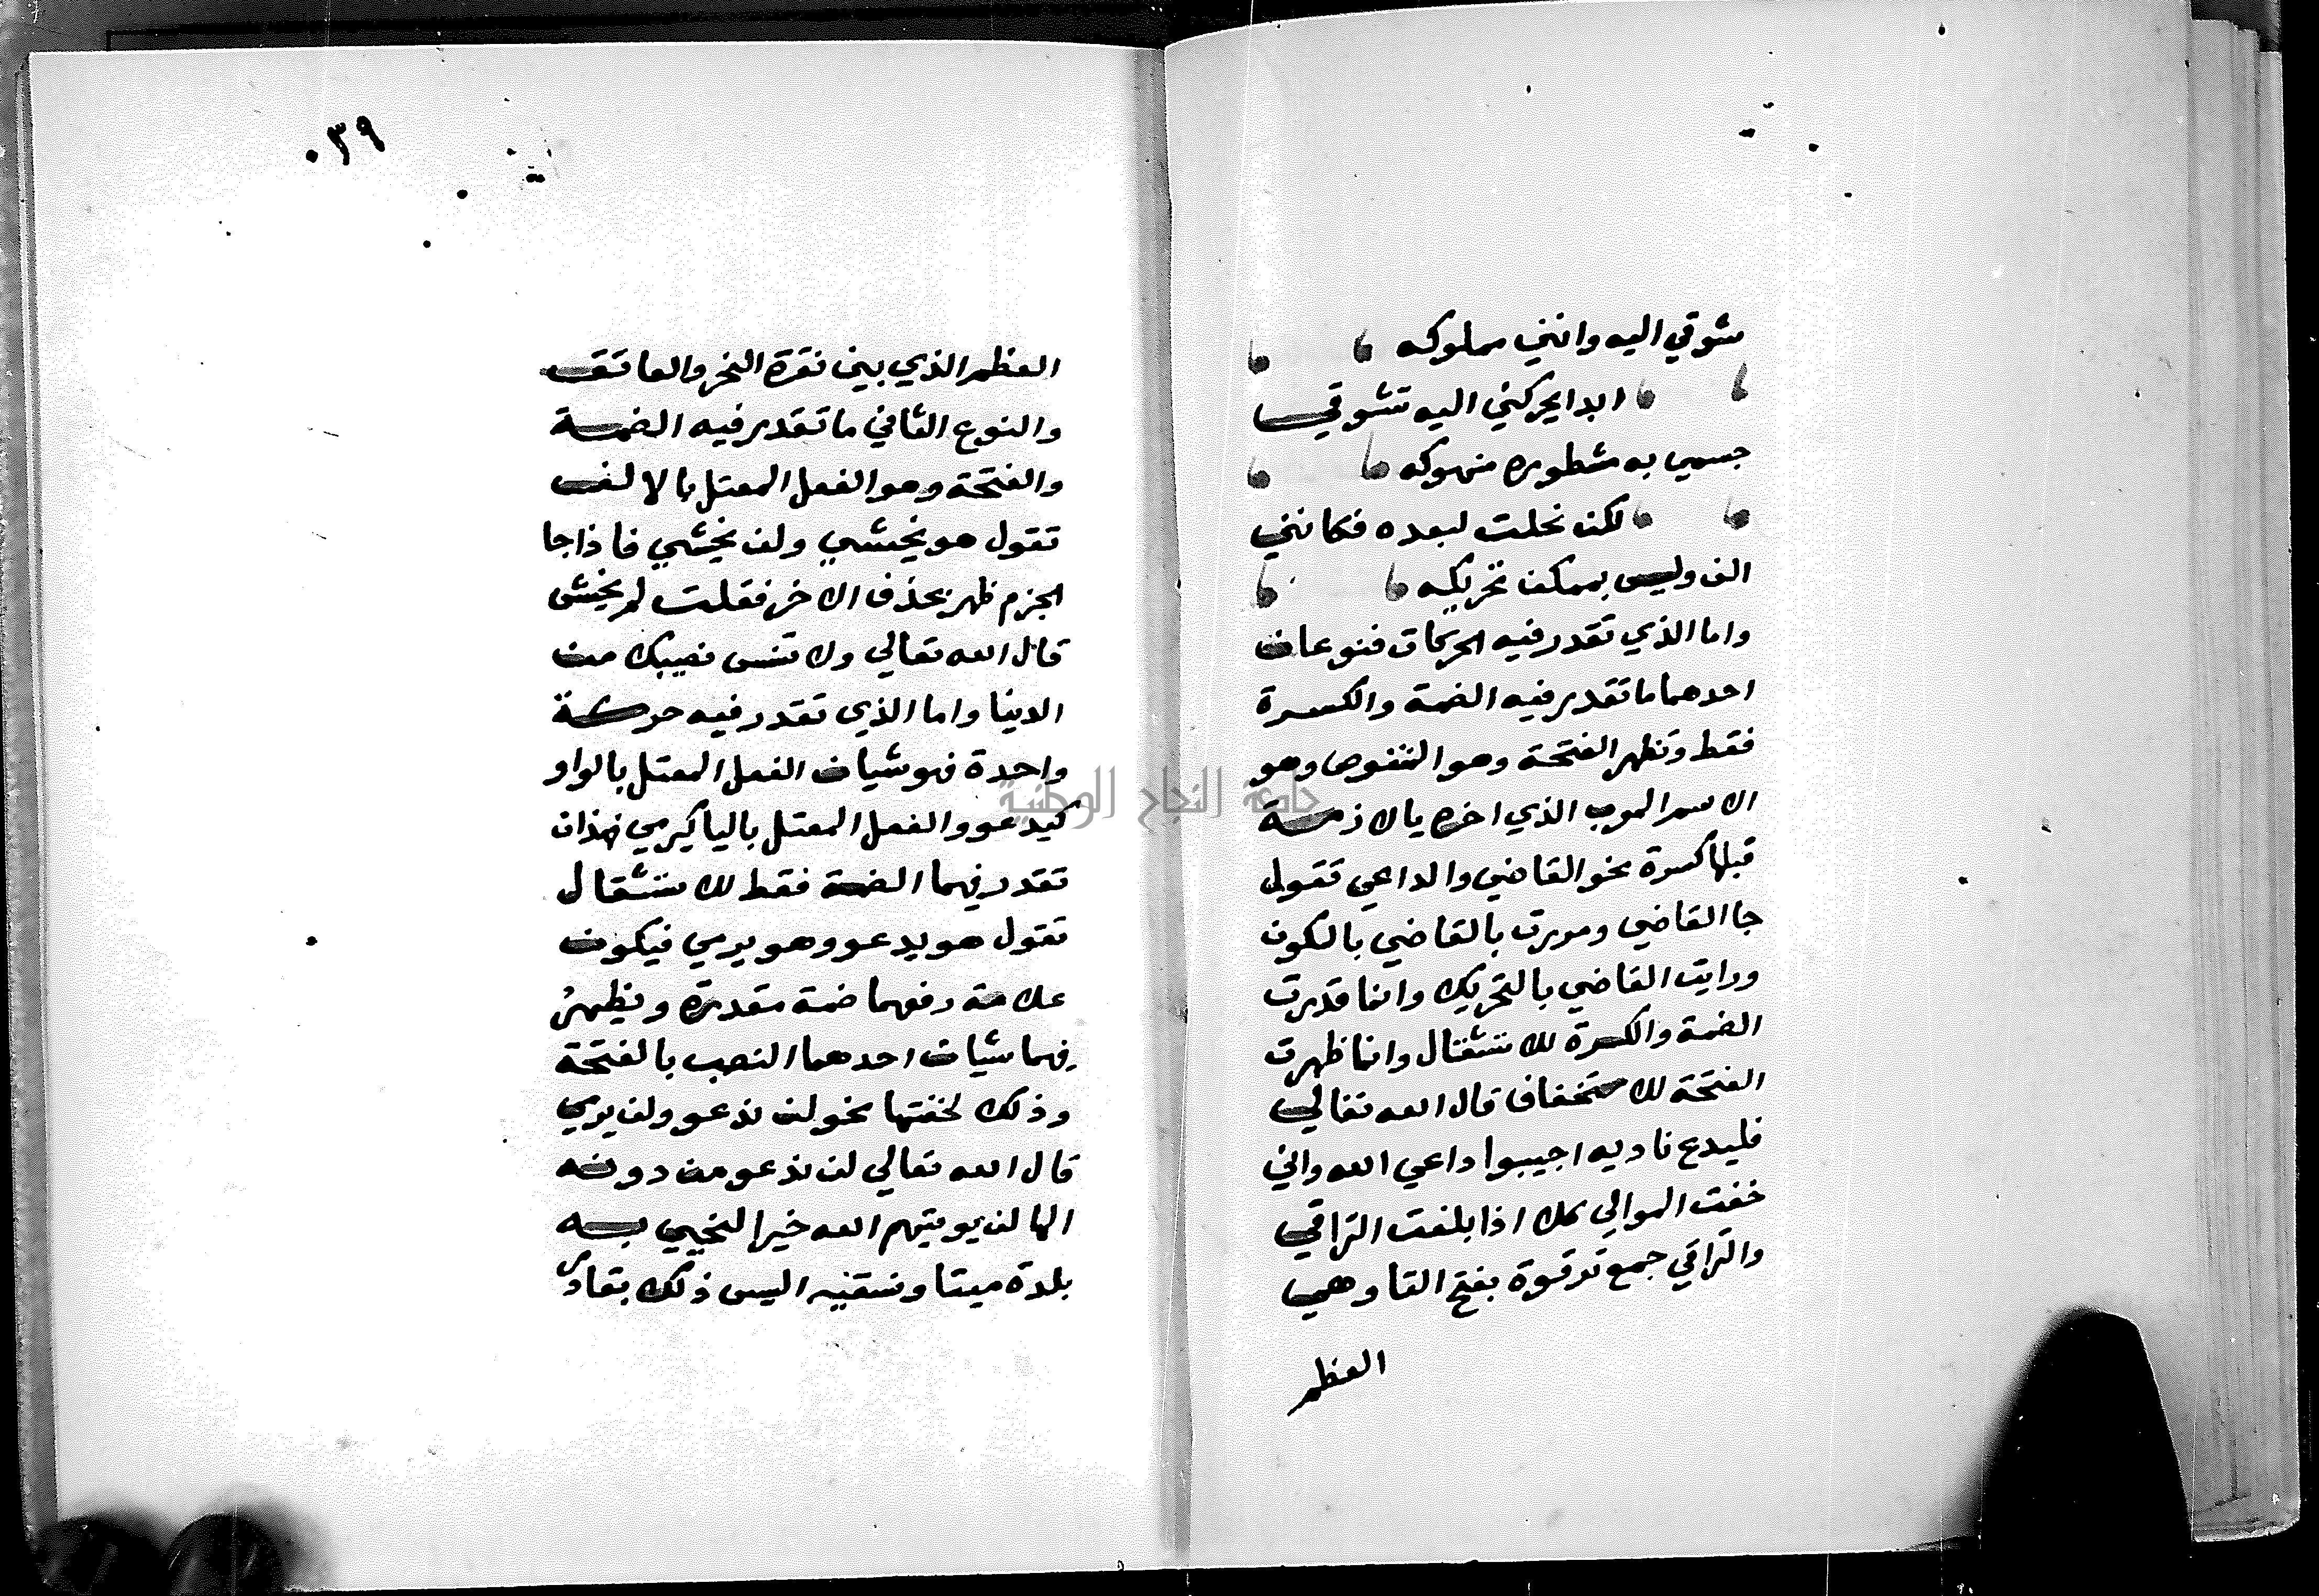 شوقي اليه وانني مملوكه
ابدا يحركني اليه تشوقي
جسمي به مشطوره منهوكه
لكن نحلت لبعده فكانني
الف وليس بممكن تحريكه
واما الذي تقدر فيه الحركات فنوعان
احدهما ما تقدر فيه الضمة والكسرة
فقط وتظهر الفتحة وهو المنقوص وهو
الاسم المعرب الذي اخره يا لازمة
قبلها كسرة نحو القاضي والداعي تقول
جا القاضي ومررت بالقاضي بالسكون
ورايت القاضي بالتحريك وانما قدرت
الضمة والكسرة للاستثقال وانما ظهرت
الفتحة للاستخفاف قال الله تعالي
فليدع ناديه اجيبوا داعي الله واني
خفت الموالي كلا اذا بلغت التراقي
والتراقي جمع ترقوة بفتح التا وهي
العظم
٠٣٩
العظم الذي بين نقرة النحر والعاتق
والنوع الثاني ما تقدر فيه الضمة
والفتحة وهو الفعل المعتل بالالف
تقول هو يخشي ولن يخشي فاذا جا
الجزم ظهر بحذف الاخر فقلت لم يخش
قال الله تعالي ولا تنس نصيبك من
الدنيا واما الذي تقدر فيه حركة
واحدة فهو شيان الفعل المعتل بالواو
كيدعو والفعل المعتل باليا كيرمي فهذان
تقدر فيهما الضمة فقط للاستثقال
تقول هو يدعو وهو يرمي فيكون
علامة رفعهما ضمة مقدرة ويظهر
فيهما شيان احدهما النصب بالفتحة
وذلك لخفتها نحو لن ندعو ولن يرمي
قال الله تعالي لن ندعو من دونه
الها لن يوتيهم الله خيرا لنحيي به
بلدة ميتا ونسقيه اليس ذلك بقادر
جامعة النجاح الوطنية